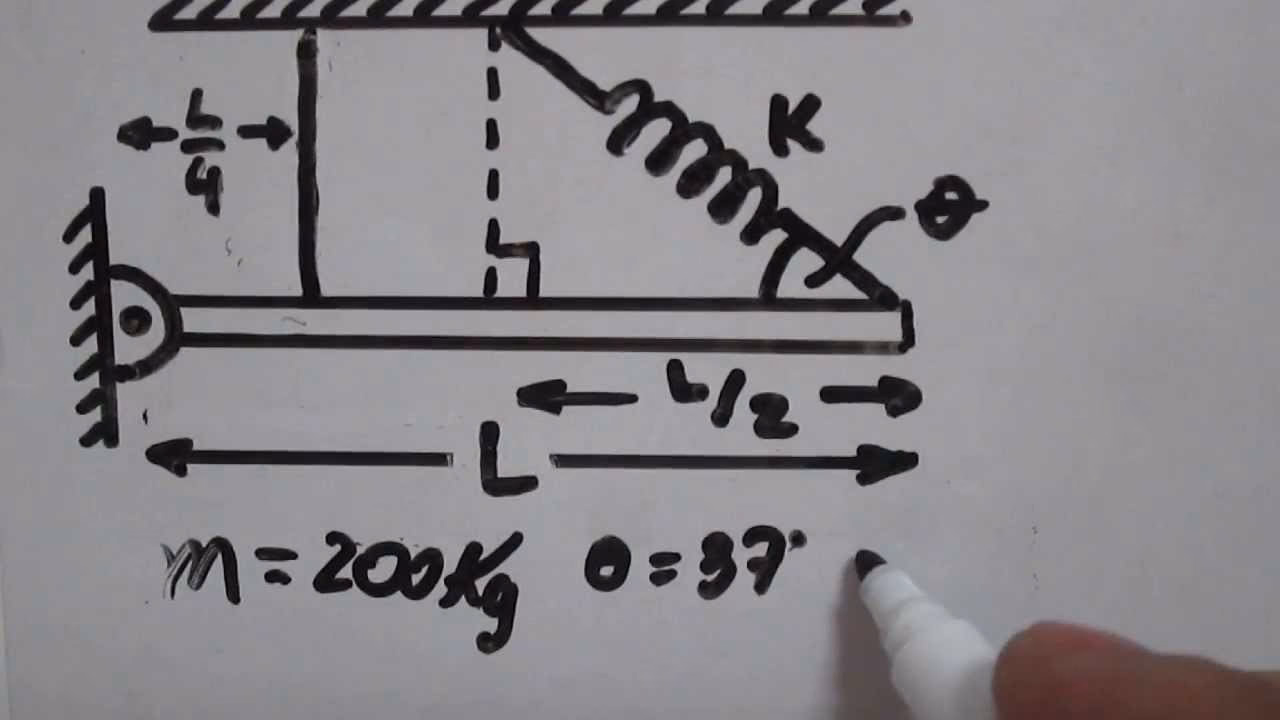 K
L/4
θ
L/2
L
m = 200Kg θ = 37°